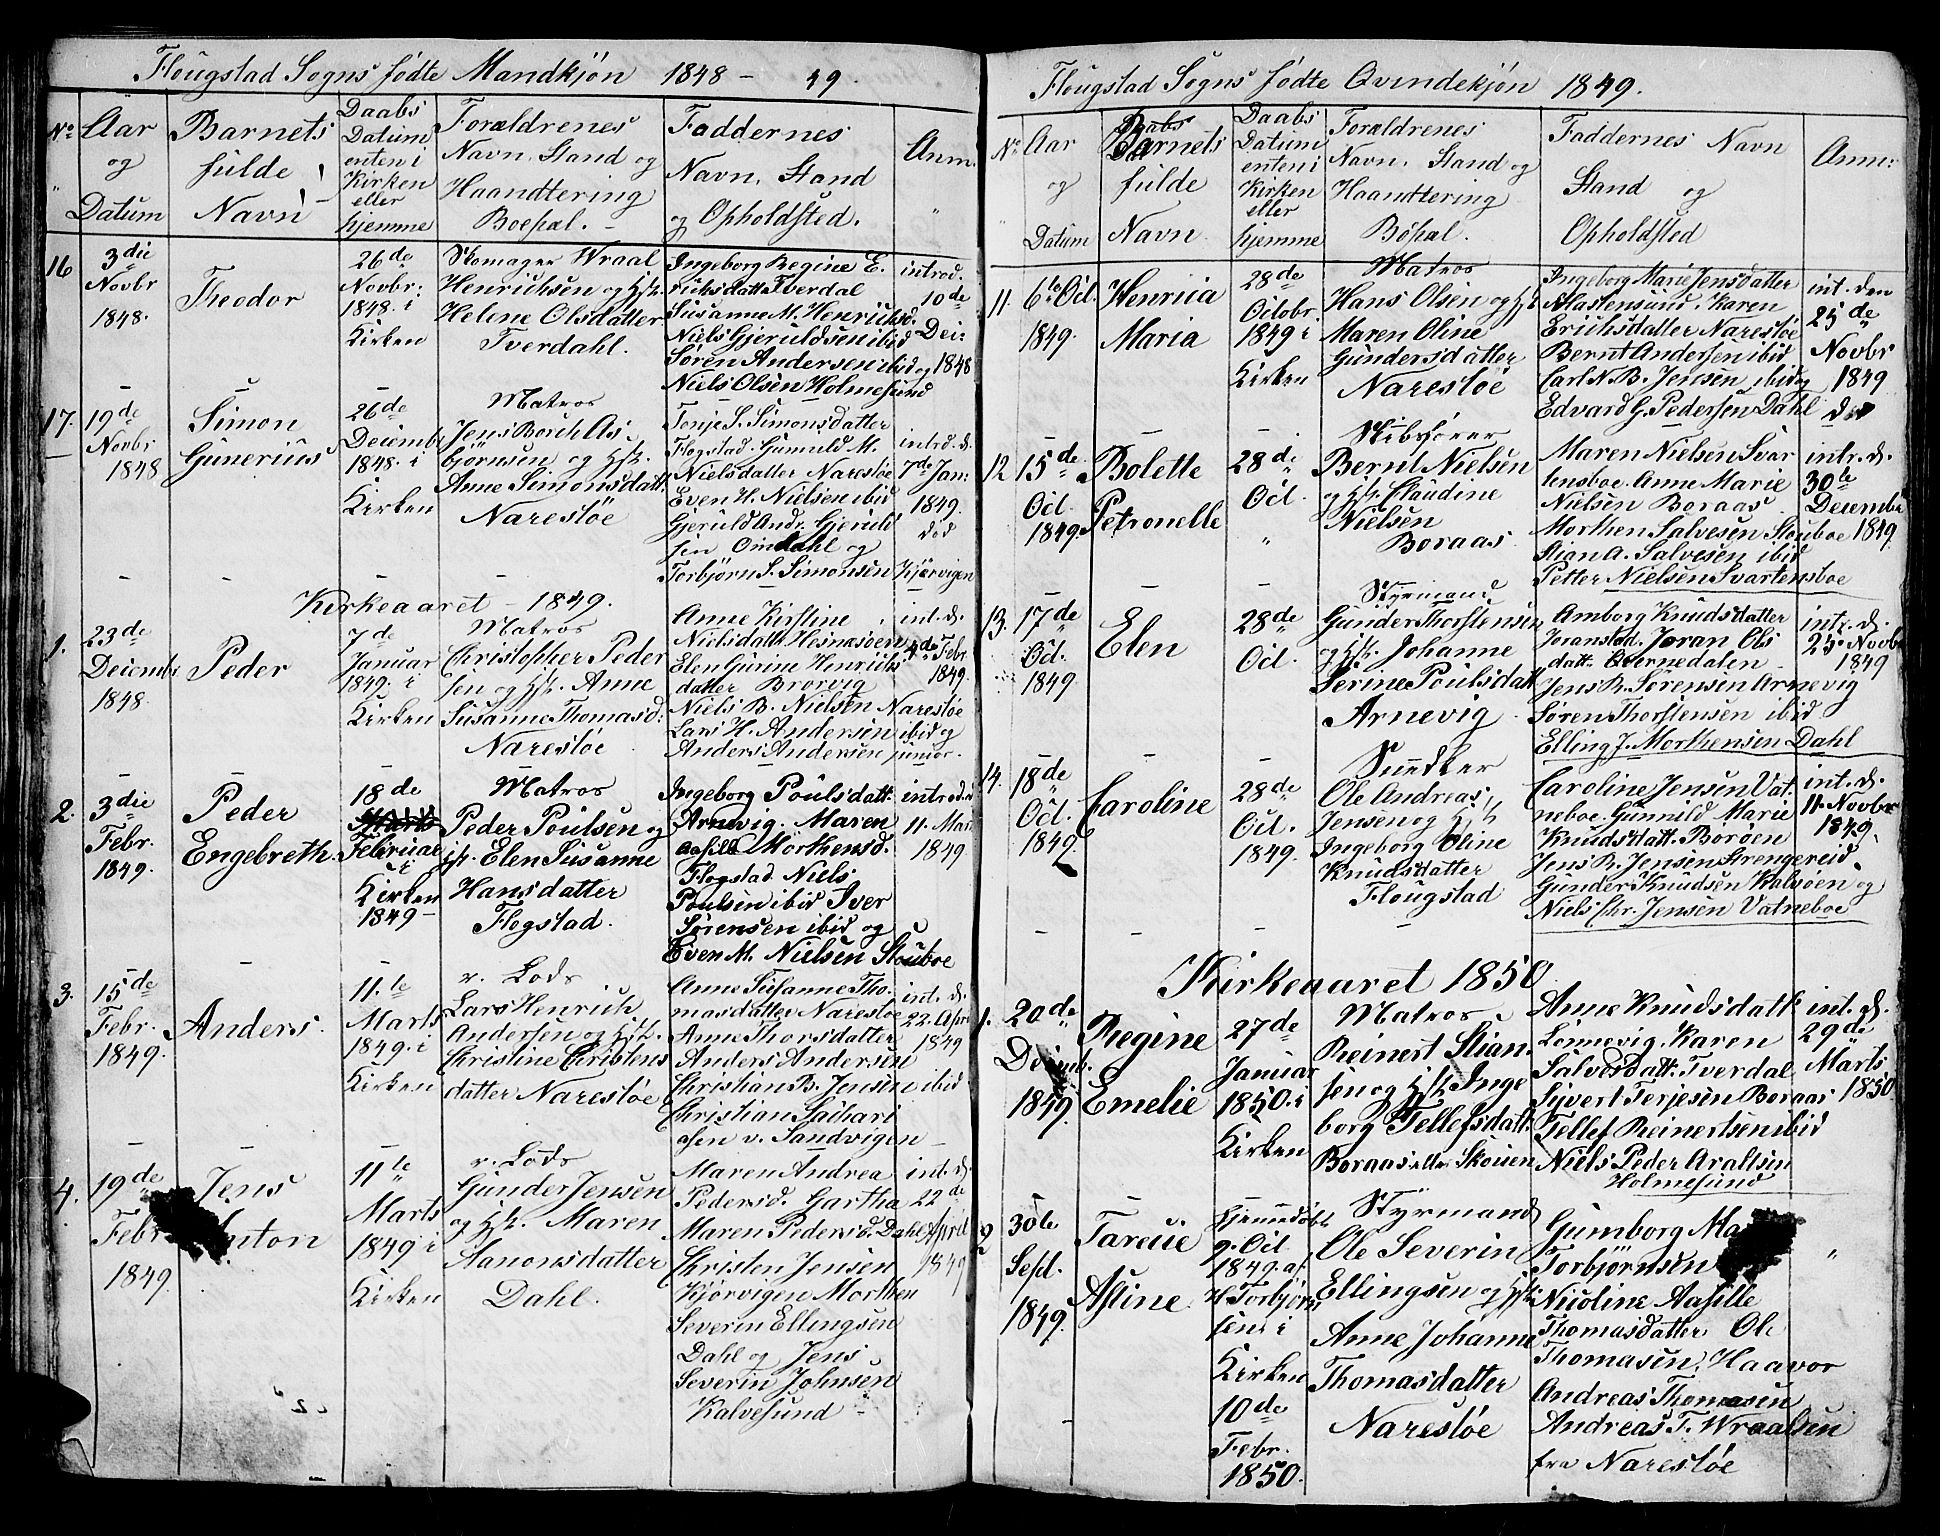 Flougstad Sogns fødte Mandkjøn 1848 - 49.
No Aar og Datum
Barnets fulde Navn
Daabs Datum enten i Kirken eller hjemme
Forældrenes Navn, Stand og Haandtering Boepæl.
Faddernes Navn, Stand og Opholdsted.
Anm.
16
3die
Novbr
1848.
Theodor
26de
Novbr.
1848. i
Kirken
Skomager Wraal
Henrichsen og Hst.
Helene Olsdatter
Tverdahl.
Ingeborg Regine E.
richsdatt. Tverdal
Susanne M. Henrichsd.
Niels Gjeruldsen ibid
Søren Andersen ibid og
Niels Olsen Holmesund
introd.
10de
Dec.
1848
17.
19de
Novbr
1848
Simon
Gunerius
26de
Decembr
1848. i
Kirken
Matros
Jens Borch As-
bjørnsen og Hst.
Anne Simonsdatt.
Narestøe
Tonje S. Simonsdatter
Flogstad. Gunuld M.
Nielsdatter Narestøe
Even H. Nielsen ibid
Gjeruld Andr. Gjeruld
sen Omdahl og
Torbjørn S. Simonsen Kjørvigen
introd. d.
7de Jan:
1849.
død
Kirkeaaret - 1849.
1.
23de
Decembr
1848.
Peder
7de
Januar
1849. i
Kirken
Matros
Christopher Peder
sen og Hst. Anne
Susanne Thomasd:
Narestøe
Anne Kirstine
Nielsdatt. Hesnæsøen
Elen Gurine Henrichs
datter Brorvig
Niels B. Nielsen Narestøe
Lars H. Andersen ibid og
Anders Andersen junior.
int. d.
4de Febr
1849.
2.
3die
Febr.
1849.
Peder
Engebreth.
18de
Februar
i
Kirken
1849 -
Matros
Peder Poulsen og
Hst. Elen Susanne
Hansdatter
Flogstad.
Ingeborg Poulsdatt.
Arnevig. Maren
Aasild Morthensd.
Flogstad Niels
Poulsen ibid Iver
Sørensen ibid og
Even M. Nielsen Stouboe
introd. d.
11. Marts
1849
3.
15de
Febr.
1849.
Anders.
11.te
Marts
1849. i
Kirken
r. Lods
Lars Henrich
Andersen og Hst.
Christine Christens
datter Narestøe
Anne Susanne Tho-
masdatter Narestøe
Anne Thorsdatter
Anders Andersen
Christian B. Jensen ibid
Christian Sachari
asen v. Sandvigen
int. d.
22. April
1849
4.
19de
Febr
1849.
Jens
Anton
11te
Marts
1849 i
Kirken
r. Lods
Gunder Jensen
og Hst. Maren
Aanonsdatter
Dahl.
Maren Andrea
Pedersd. Gartha
Maren Pedersd. Dahl
Christen Jensen
Kjørvigen Morthen
Severin Ellingsen
Dahl og Jens
Severin Johnsen
Kalvesund
int. d.
22de
April
1849
Flougstad Sogns fødte Qvindekjøn 1849.
No Aar og Datum
Barnets fulde Navn
Daabs Datum enten i Kirken eller hjemme
Forældrenes Navn, Stand og Haandtering Bopæl.
Faddernes Navn Stand og Opholdsted
Anm:
11.
6te Oct.
1849.
Henrica
Maria
28de
Octobr
1849 i
Kirken
Matros
Hans Olsen og Hst
Maren Oline
Gundersdatter
Narestøe
Ingeborg Marie Jensdatter
Alastensund. Karen
Erichsdatter Narestøe
Bernt Andersen ibid
Carl N. B. Jensen ibid og
Edvard G. Pedersen Dahl
int. den
25de
Novbr
1849
12
15de
Oct.
1849.
Bolette
Petronelle
28de
Oct.
Skibsfører
Bernt Nielsen
og Hst. Claudine
Nielsen
Boraas
Maren Nielsen Svar
tensboe. Anne Marie
Nielsen Boraas
Morthen Salvesen Stouboe
Stian A. Salvesen ibid
Petter Nielsen Svartensboe
intr. d.
30te
Decembr
1849.
13.
17de
Oct.
1849
Elen
28de
Oct.
Styrmand
Gunder Thorstensen
og Hst. Johanne
Serine Poulsdatt
Arnevig
Amborg Knudsdatter
Joranstad. Joran Ols
datt. Qvernedalen
Jens R. Sørensen Arnevig
Søren Thorstensen ibid
Elling J. Morthensen Dahl
intr. d.
25. Novbr
1849
14.
18de
Oct.
1849.
Caroline
28de
Oct.
1849.
Snedker
Ole Andreas
Jensen og Hst
Ingeborg Oline
Knudsdatter
Flougstad
Caroline Jensen Vat-
neboe. Gunuld Marie
Knudsdatt. Borøen
Jens R. Jensen Strengereid.
Gunder Knudsen Kalvøen og
Niels Chr. Jensen Vatneboe
int. d.
11. Novbr
1849.
Kirkeaaret 1850
1.
20de
Decmb.
1849.
Regine
Emelie
27de
Januar
1850. i
Kirken
Matros
Reinert Stian-
sen og Hst Inge
borg Tellefsdatt.
Boraas eller Skouen
Anne Knudsdatt.
Lønnevig. Karen
Salvesdatt. Tverdal
Syvert Terjesen Boraas
Tellef Reinertsen ibid
Niels Peder Araltsen
Holmesund
int. d.
29de
Marts
1850
2
30te
Sept.
1849.
Tarcue
Asline
hjemmedøbt
9. Oct
1849. af
H Torbjørn
sen i
Kirken
10de
Febr.
1850.
Styrmand
Ole Severin
Ellingsen og Hst.
Anne Johanne
Thomasdatter
Narestøe
Gumborg Ma
Torbjørnsen
Nicoline Aasille
Thomasdatter. Ole
Thomasen, Haavor
Andreas Thomasen
Andreas T. Wraalsen
fra Narestøe